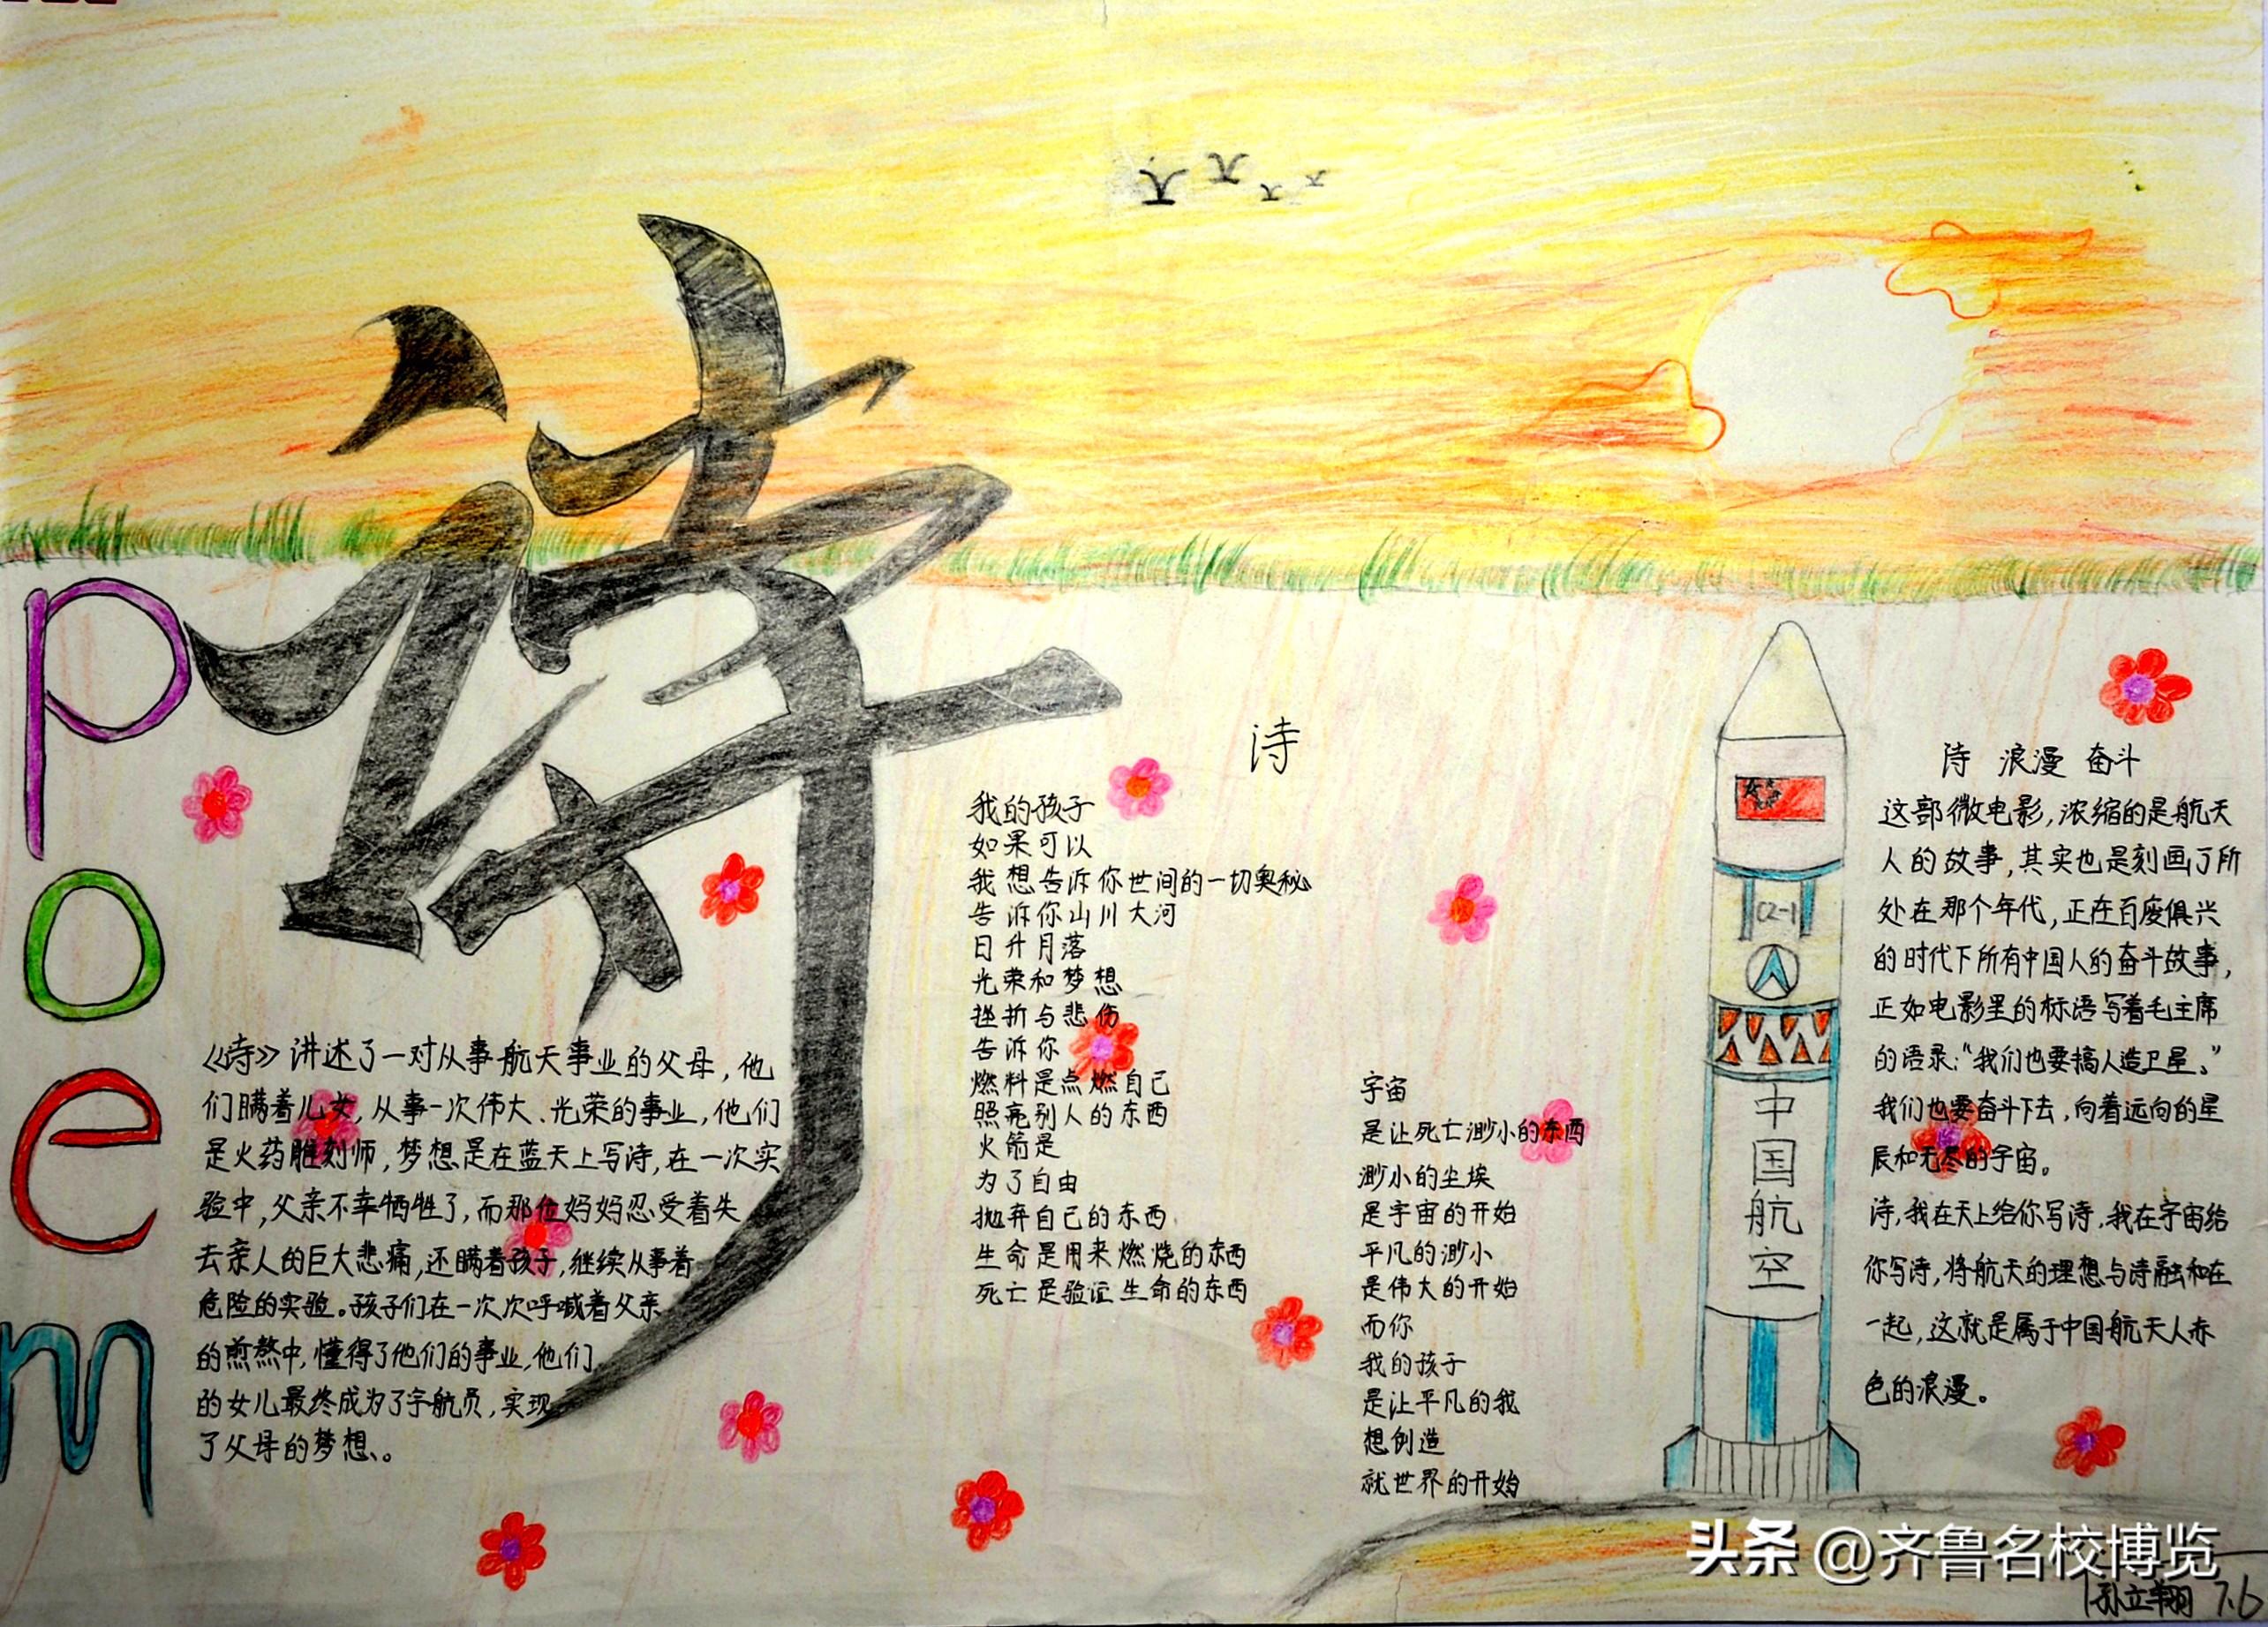 诗
poem
《诗》讲述了一对从事航天事业的父母，他
们瞒着儿女，从事一次伟大、光荣的事业，他们
是火药雕刻师，梦想是在蓝天上写诗，在一次实
验中，父亲不幸牺牲了，而那位妈妈忍受着失
去亲人的巨大悲痛，还瞒着孩子，继续从事着
危险的实验。孩子们在一次次呼喊着父亲
的煎熬中，懂得了他们的事业，他们
的女儿最终成为了宇航员，实现
了父母的梦想。
诗
我的孩子
如果可以
我想告诉你世间的一切奥秘
告诉你山川大河
日升月落
光荣和梦想
挫折与悲伤
告诉你
燃料是点燃自己
照亮别人的东西
火箭是
为了自由
抛弃自己的东西
生命是用来燃烧的东西
死亡是验证生命的东西
宇宙
是让死亡渺小的东西
渺小的尘埃
是宇宙的开始
平凡的渺小
是伟大的开始
而你
我的孩子
是让平凡的我
想创造
就世界的开始
CZ-1
中国航空
诗 浪漫 奋斗
这部微电影，浓缩的是航天
人的故事，其实也是刻画了所
处在那个年代，正在百废俱兴
的时代下所有中国人的奋斗故事，
正如电影里的标语写着毛主席
的语录：“我们也要搞人造卫星。”
我们也要奋斗下去，向着远向的星
辰和无尽的宇宙。
诗，我在天上给你写诗，我在宇宙给
你写诗，将航天的理想与诗融和在
一起，这就是属于中国航天人赤
色的浪漫。
头条 @齐鲁名校博览
孙立翔 7.6